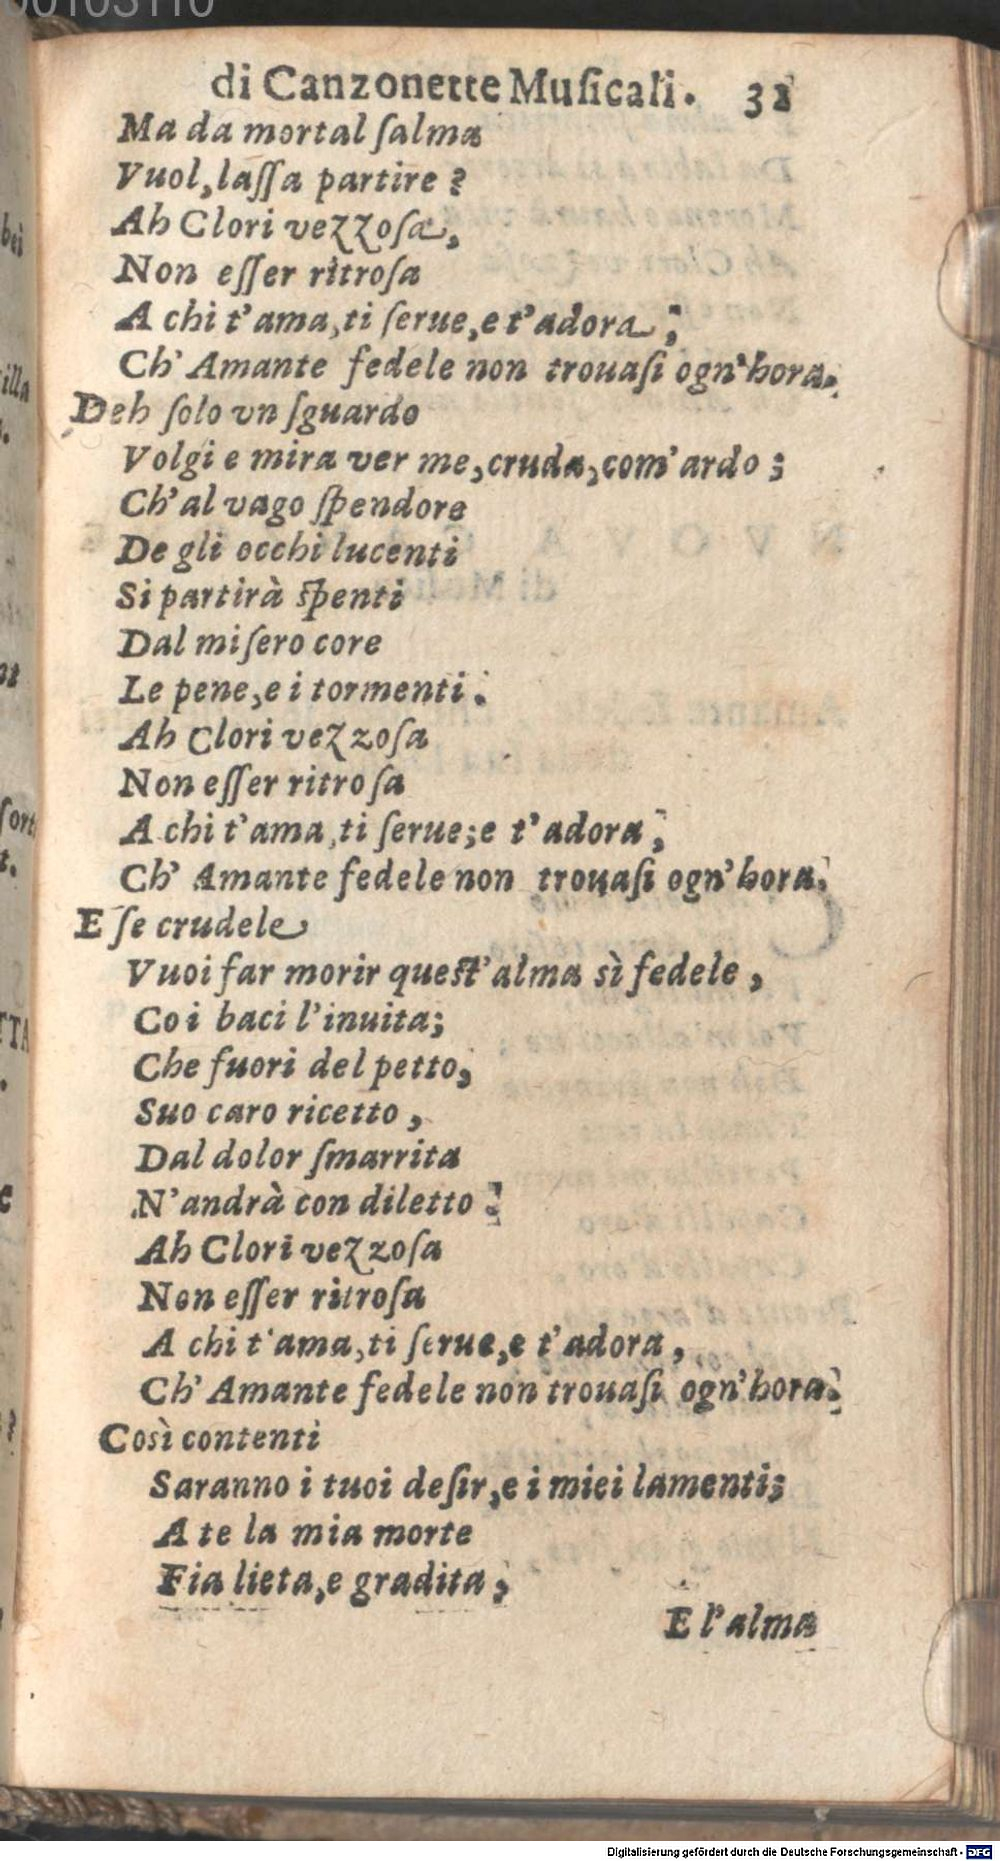 00103110
di Canzonette Muſicali. 32
Ma da mortal ſalma
Vuol, laſſa partire?
Ah Clori vezzoſa,
Non eſſer ritroſa
A chi t'ama, ti ſerue, e t'adora;
Ch' Amante fedele non trouaſi ogn'hora.
Deh ſolo vn ſguardo
Volgi e mira ver me, cruda, com' ardo;
Ch' al vago ſpendore
De gli occhi lucenti
Si partirà ſpenti
Dal miſero core
Le pene, e i tormenti.
Ah Clori vezzoſa
Non eſſer ritroſa
A chi t'ama, ti ſerue; e t'adora;
Ch' Amante fedele non trouaſi ogn'hora.
E ſe crudele
Vuoi far morir queſt'alma sì fedele,
Co i baci l'inuita;
Che fuori del petto,
Suo caro ricetto,
Dal dolor ſmarrita
N'andrà con diletto.
Ah Clori vezzoſa
Non eſſer ritroſa
A chi t'ama, ti ſerue, e t'adora,
Ch' Amante fedele non trouaſi ogn'hora.
Così contenti
Saranno i tuoi deſir, e i miei lamenti;
A te la mia morte
Fia lieta, e gradita,
E l'alma
Digitalisierung gefördert durch die Deutsche Forschungsgemeinschaft - DFG